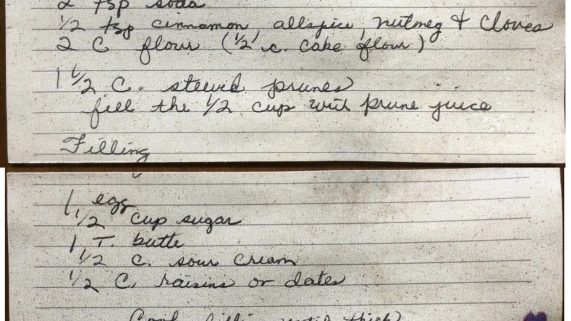 2 tsp soda
1/2 tsp cinnamon, allspice, nutmeg + cloves
2 C flour (1/2 c. cake flour)
1 1/2 C. stewed prunes
fill the 1/2 cup with prune juice
Filling
1 egg
1/2 cup sugar
1 T. butte
1/2 c. sour cream
1/2 C raisins or dates
Cook filling until thick